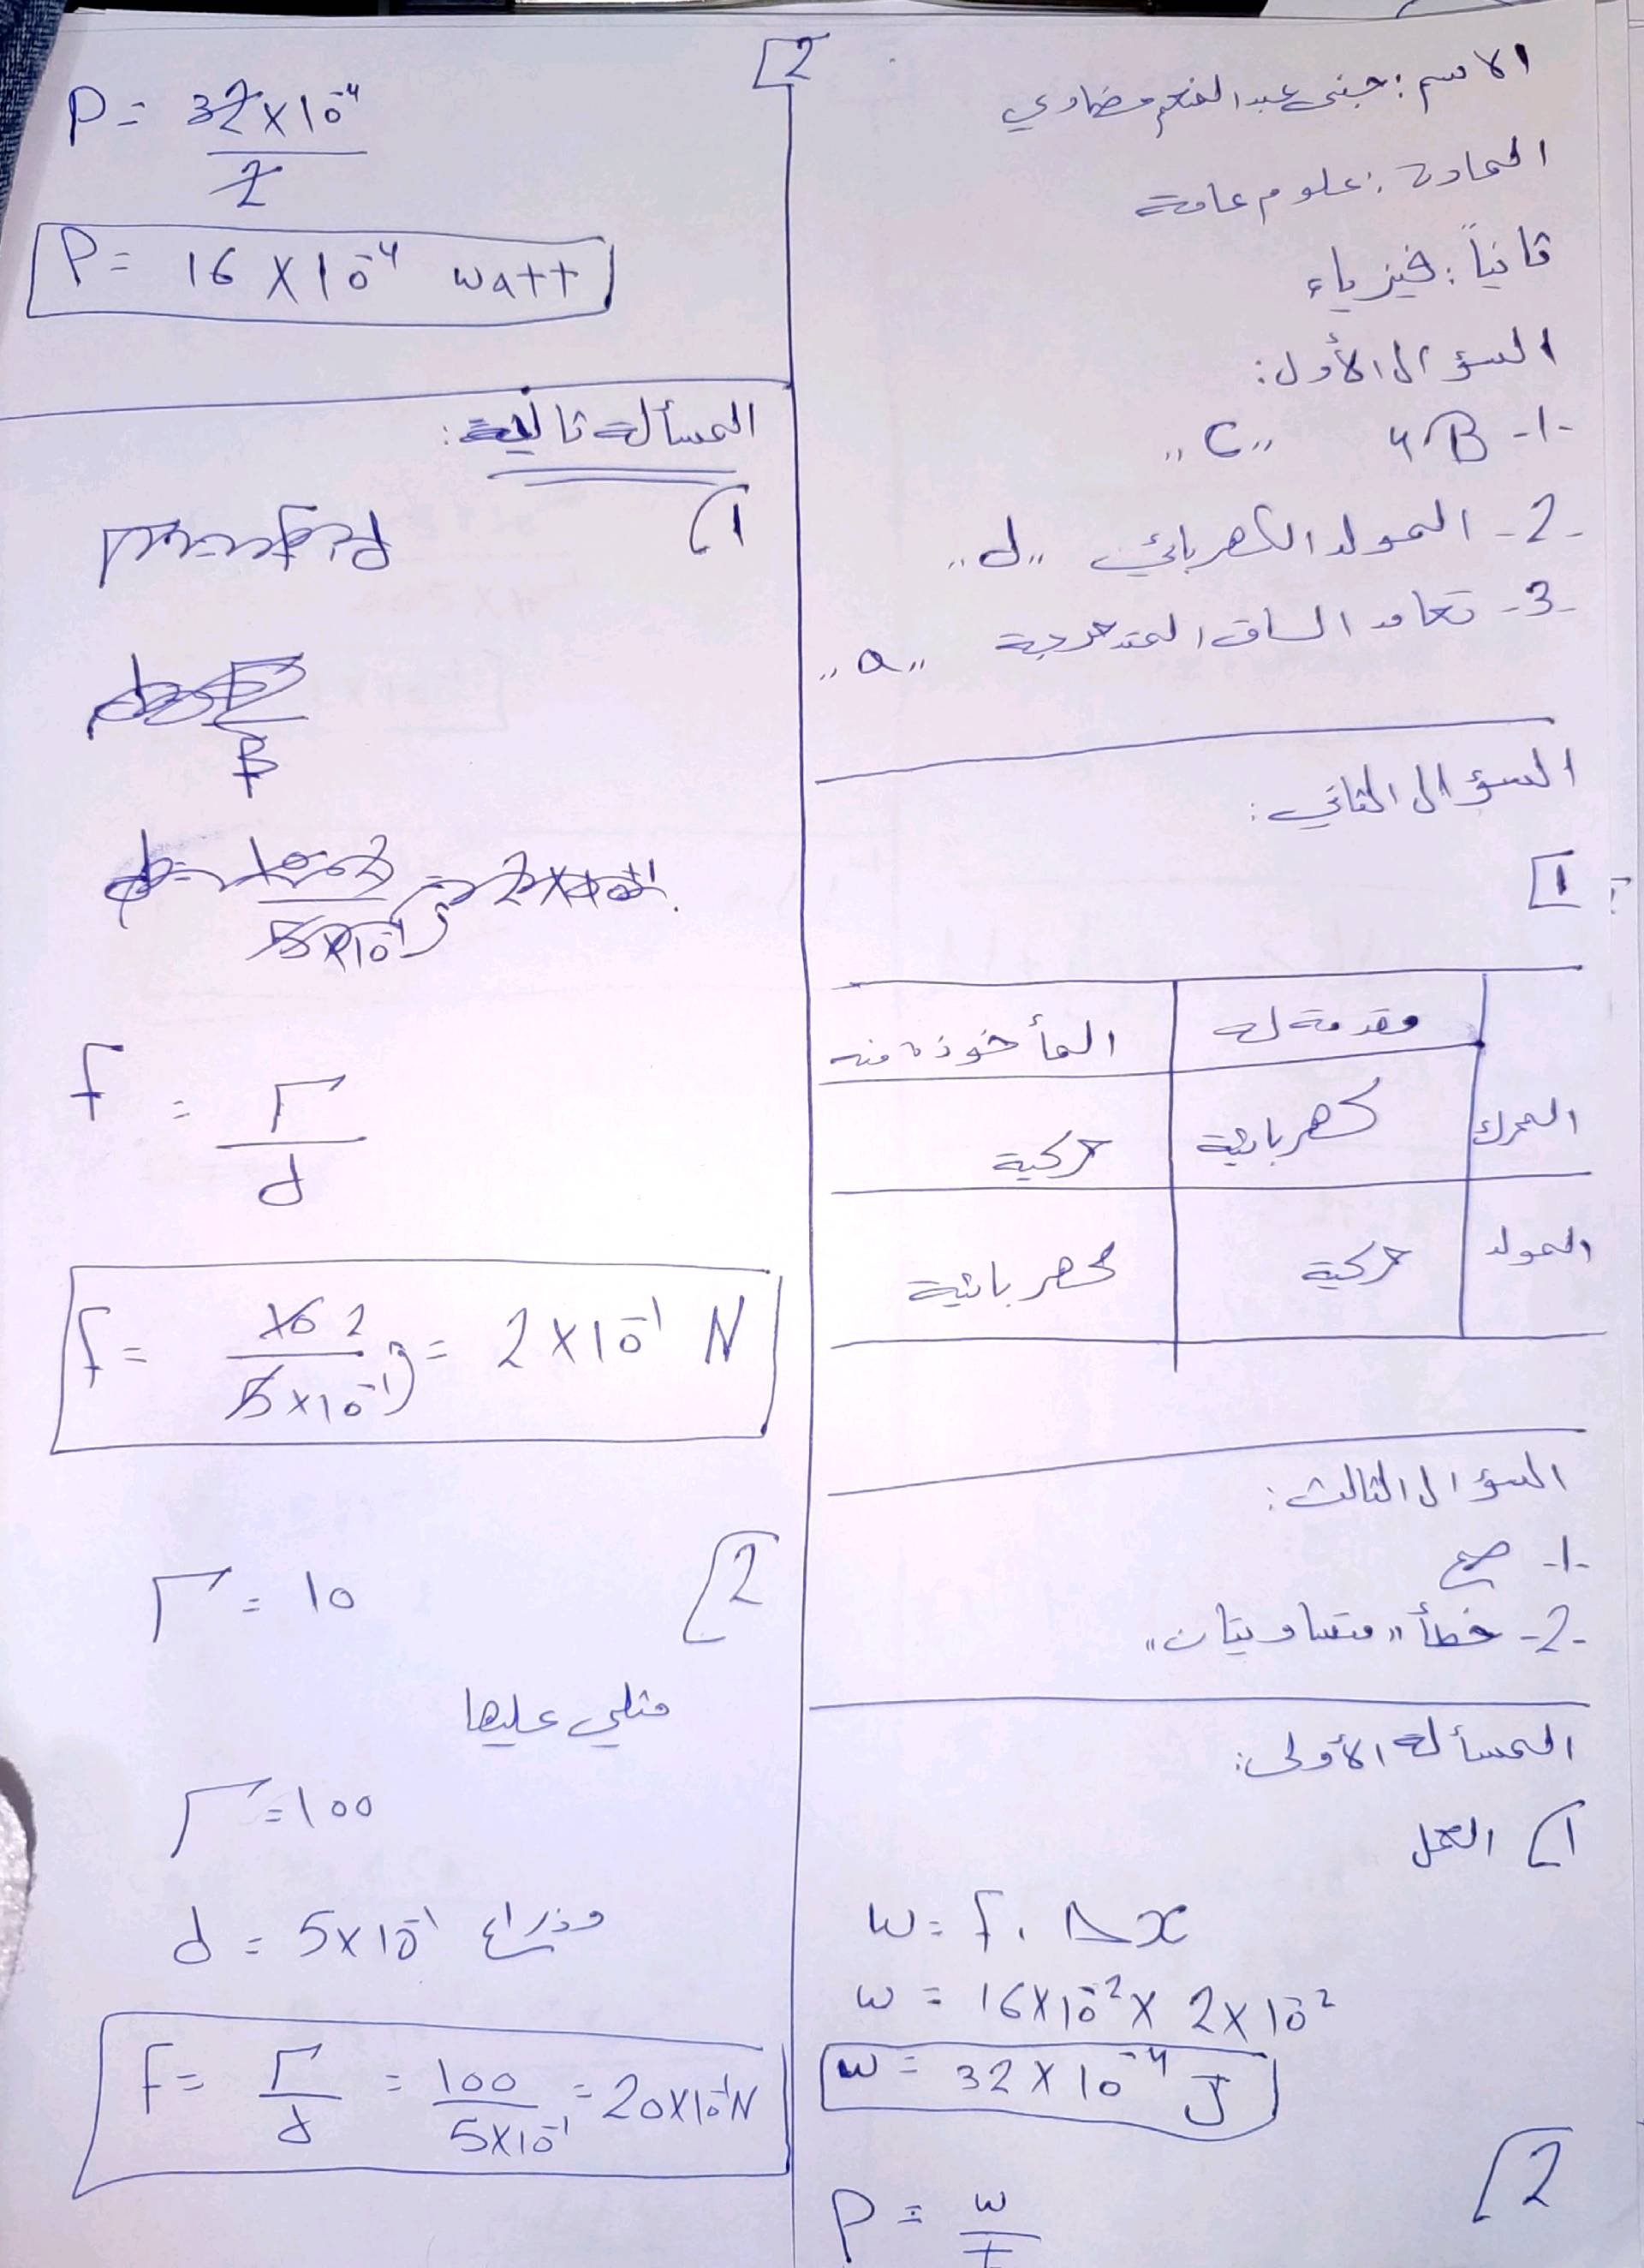 الاسم: جنى عبد المنعم مضاوي
المادة: علوم عامة
ثانياً: فيزياء
السؤال الأول:
-1- B 4 "C"
-2- المولد الكهربائي "d"
-3- تعامد الساق المتدحرجة "a"
السؤال الثاني:
1
مقدمة له المأخوذة منه
المحرك كهربائية حركية
المولد حركية كهربائية
السؤال الثالث:
-1- صح
-2- خطأ "متساويتان"
المسألة الأولى:
1) العمل
W = f . Δx
W = 16×10⁻² × 2×10⁻²
W = 32×10⁻⁴ J
2
P = W/t
2
P = 32×10⁻⁴/2
P = 16×10⁻⁴ watt
المسألة ثانية:
1
f = Γ/d
f = 10 2/5×10⁻¹ = 2×10⁻¹ N
2
Γ = 10
مثلي عليها
Γ = 100
وذراع d = 5×10⁻¹
F = Γ/d = 100/5×10⁻¹ = 20×10⁻¹ N